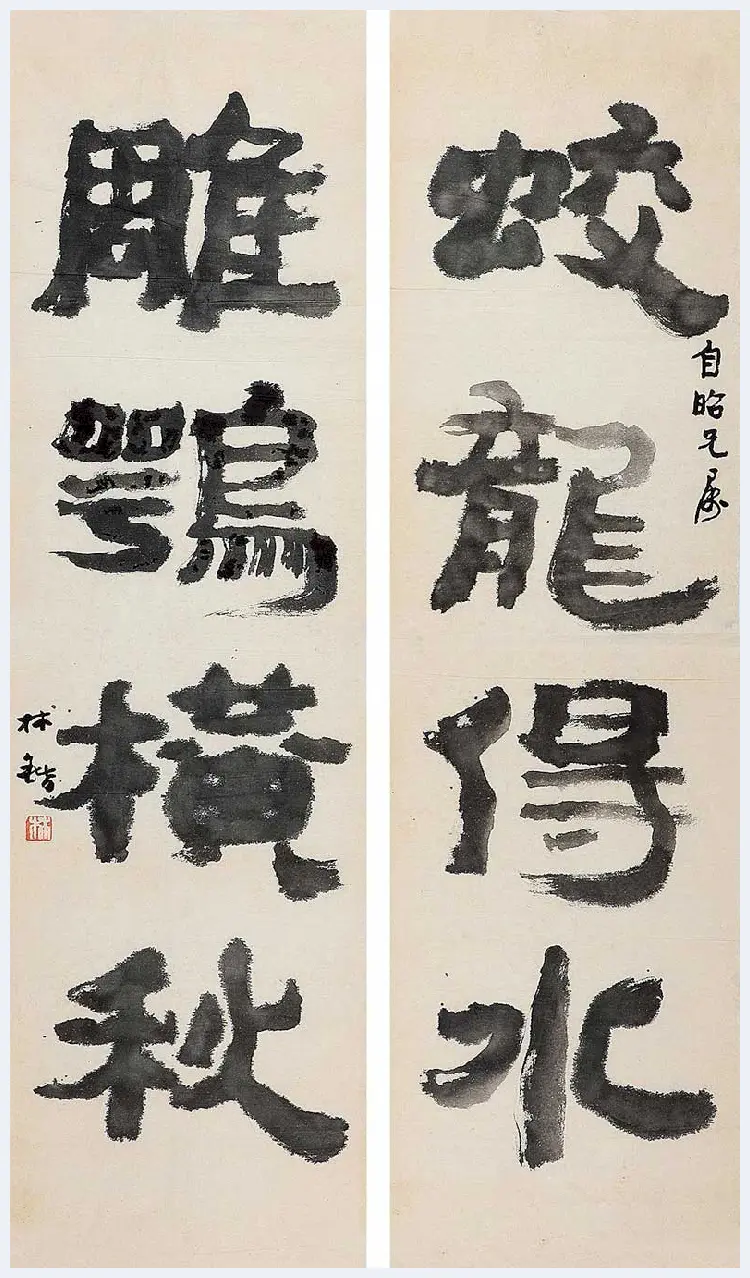 蛟龍得水
自昭兄属
雕鶚橫秋
林鍇
林